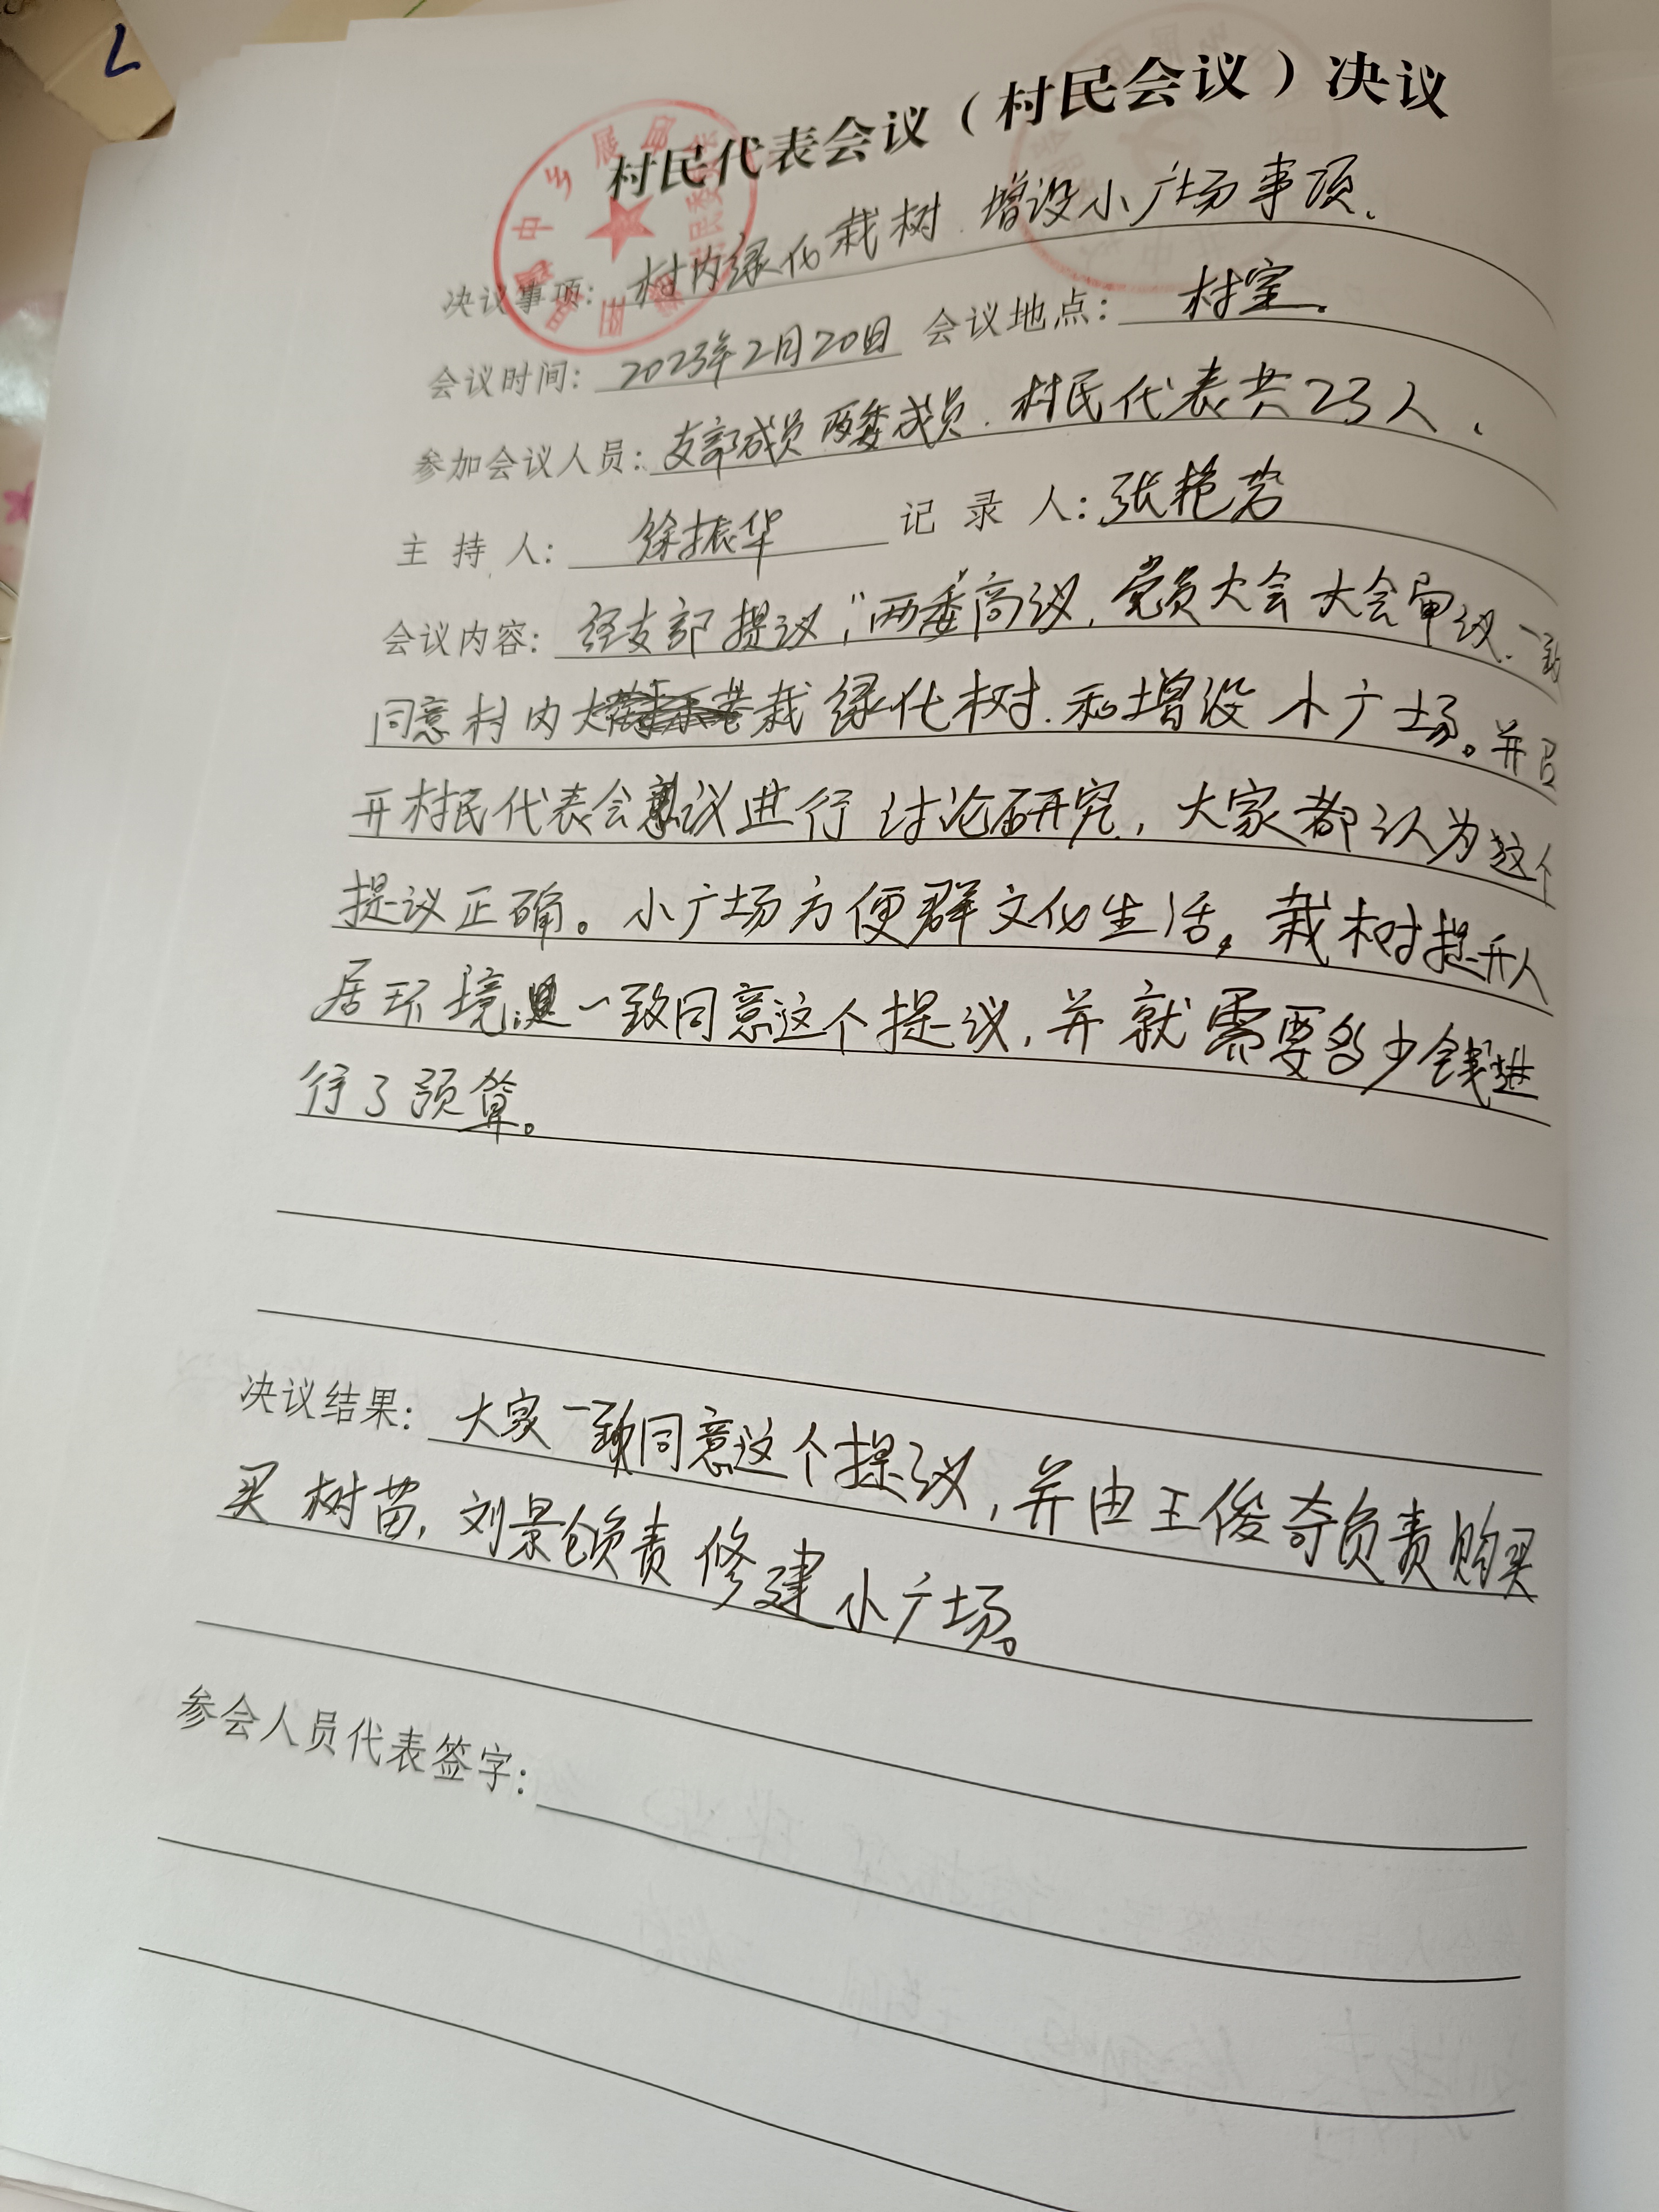 村民代表会议（村民会议）决议
决议事项：村内绿化栽树.增设小广场事项.
会议时间：2023年2月20日 会议地点：村室.
参加会议人员：支部成员 两委成员.村民代表共23人.
主持人：徐振华 记录人：张艳芳
会议内容：经支部提议,"两委商议,党员大会大会审议.一致
同意村内大栽绿化树.和增设小广场。并召
开村民代表会议进行讨论研究,大家都认为这个
提议正确。小广场方便群文化生活,栽树提升人
居环境一致同意这个提议,并就需要多少钱进
行了预算。
决议结果：大家一致同意这个提议,并由王俊奇负责购买
买树苗,刘景仓负责修建小广场。
参会人员代表签字：